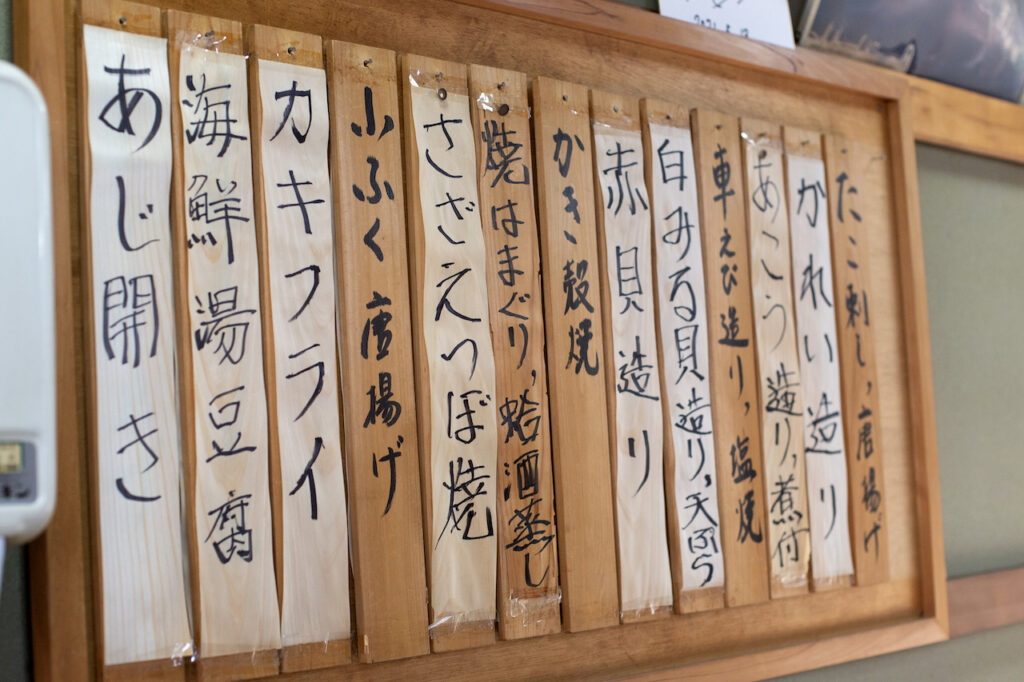 たこ刺し、唐揚げ
かれい造り
あこう造り、煮付
車えび造り、塩焼
白みる貝造り、天ぷら
赤貝造り
かき殻焼
焼はまぐり、蛤酒蒸し
さざえつぼ焼
小ふぐ唐揚げ
カキフライ
海鮮湯豆腐
あじ開き